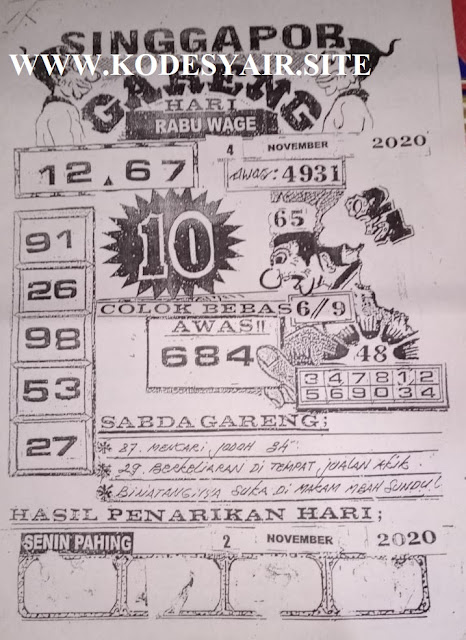 SINGGAPOR
WWW.KODESYAIR.SITE
GARENG
HARI
RABU WAGE
4 NOVEMBER 2020
12.67
AWAS: 4931
91
10
65
26
COLOK BEBAS 6//9
AWAS!!
98
684
48
53
347812
569034
27
SABDA GARENG;
* 87. MENCARI JODOH 34"
* 29. BERKELIARAN DI TEMPAT JUALAN AKIK.
* BINATANGNYA SUKA DI MAKAM MBAH SUNDUL
HASIL PENARIKAN HARI;
SENIN PAHING 2 NOVEMBER 2020